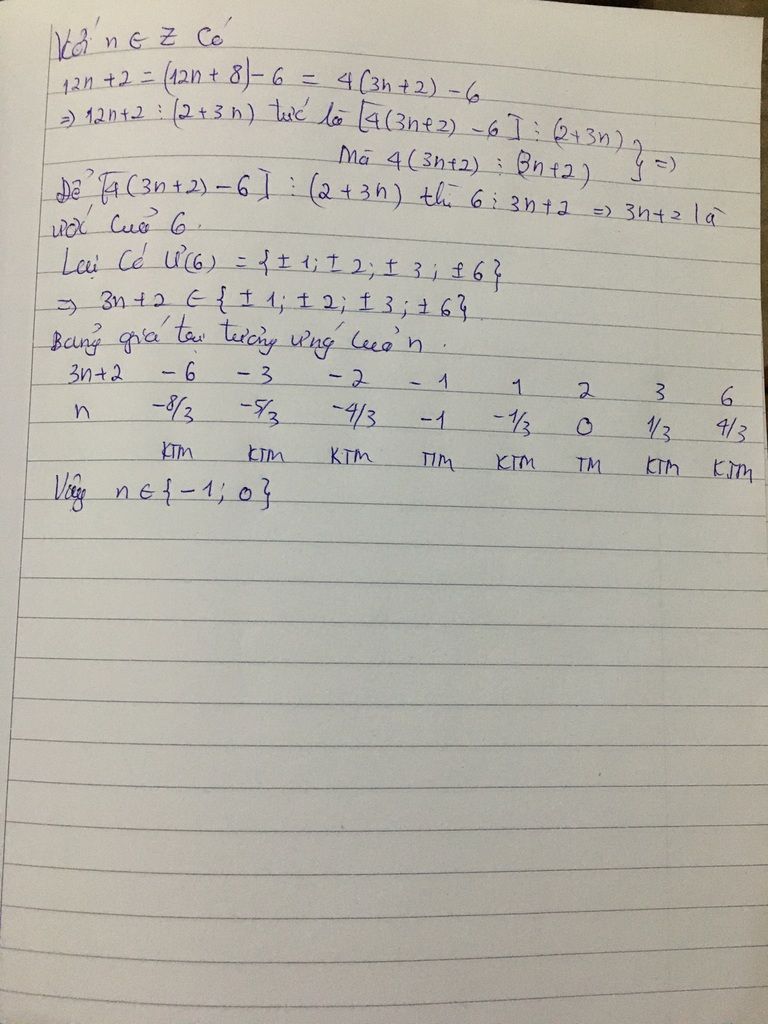 Với n ∈ Z Có
12n + 2 = (12n + 8) - 6 = 4(3n + 2) - 6
⇒ 12n+2 ⋮ (2 + 3n) tức là [4(3n+2) - 6] ⋮ (2+3n) } ⇒
Mà 4(3n+2) ⋮ (3n+2)
Để [4(3n+2) - 6] ⋮ (2 + 3n) thì 6 ⋮ 3n+2 ⇒ 3n+2 là
ước của 6.
Lại có Ư(6) = {± 1; ± 2; ± 3; ± 6}
⇒ 3n+2 ∈ {± 1; ± 2; ± 3; ± 6}
Bảng giá trị tương ứng của n.
3n+2 -6 -3 -2 -1 1 2 3 6
n -8/3 -5/3 -4/3 -1 -1/3 0 1/3 4/3
KTM KTM KTM TM KTM TM KTM KTM
Vậy n ∈ {-1; 0}